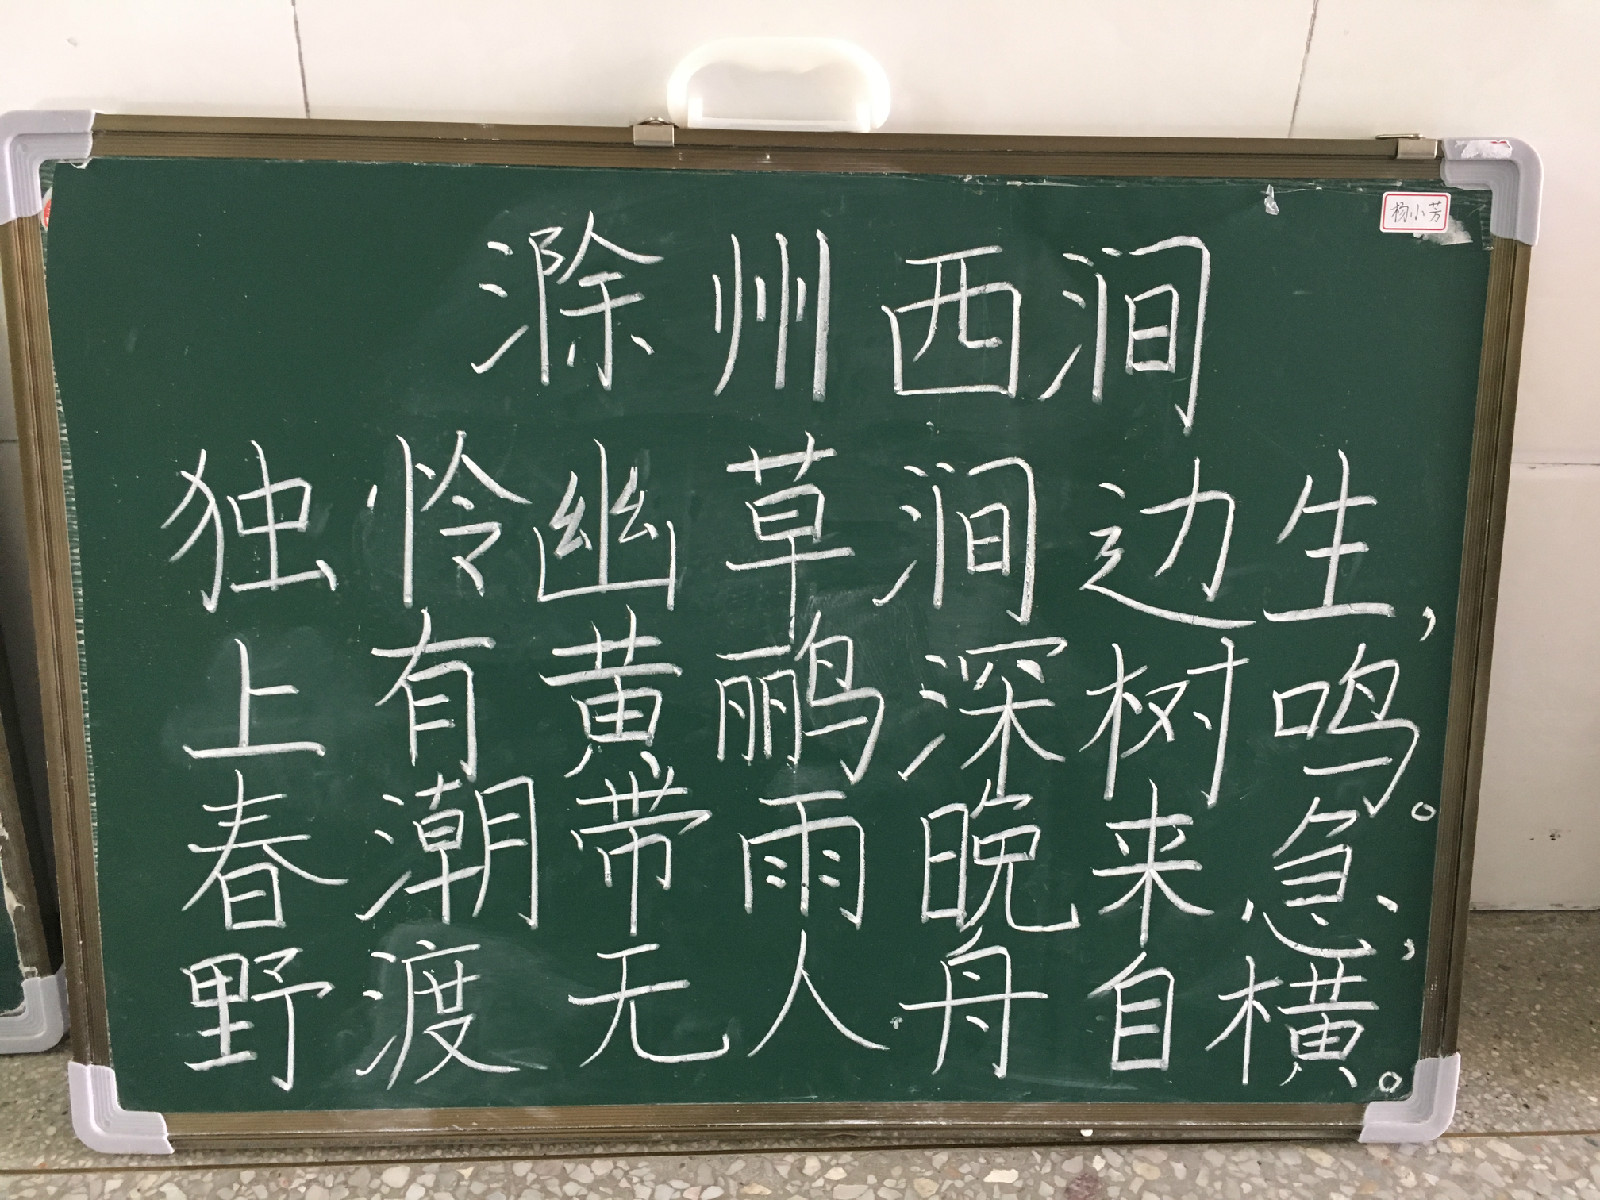 杨小芳
滁州西涧
独怜幽草涧边生，
上有黄鹂深树鸣。
春潮带雨晚来急，
野渡无人舟自横。